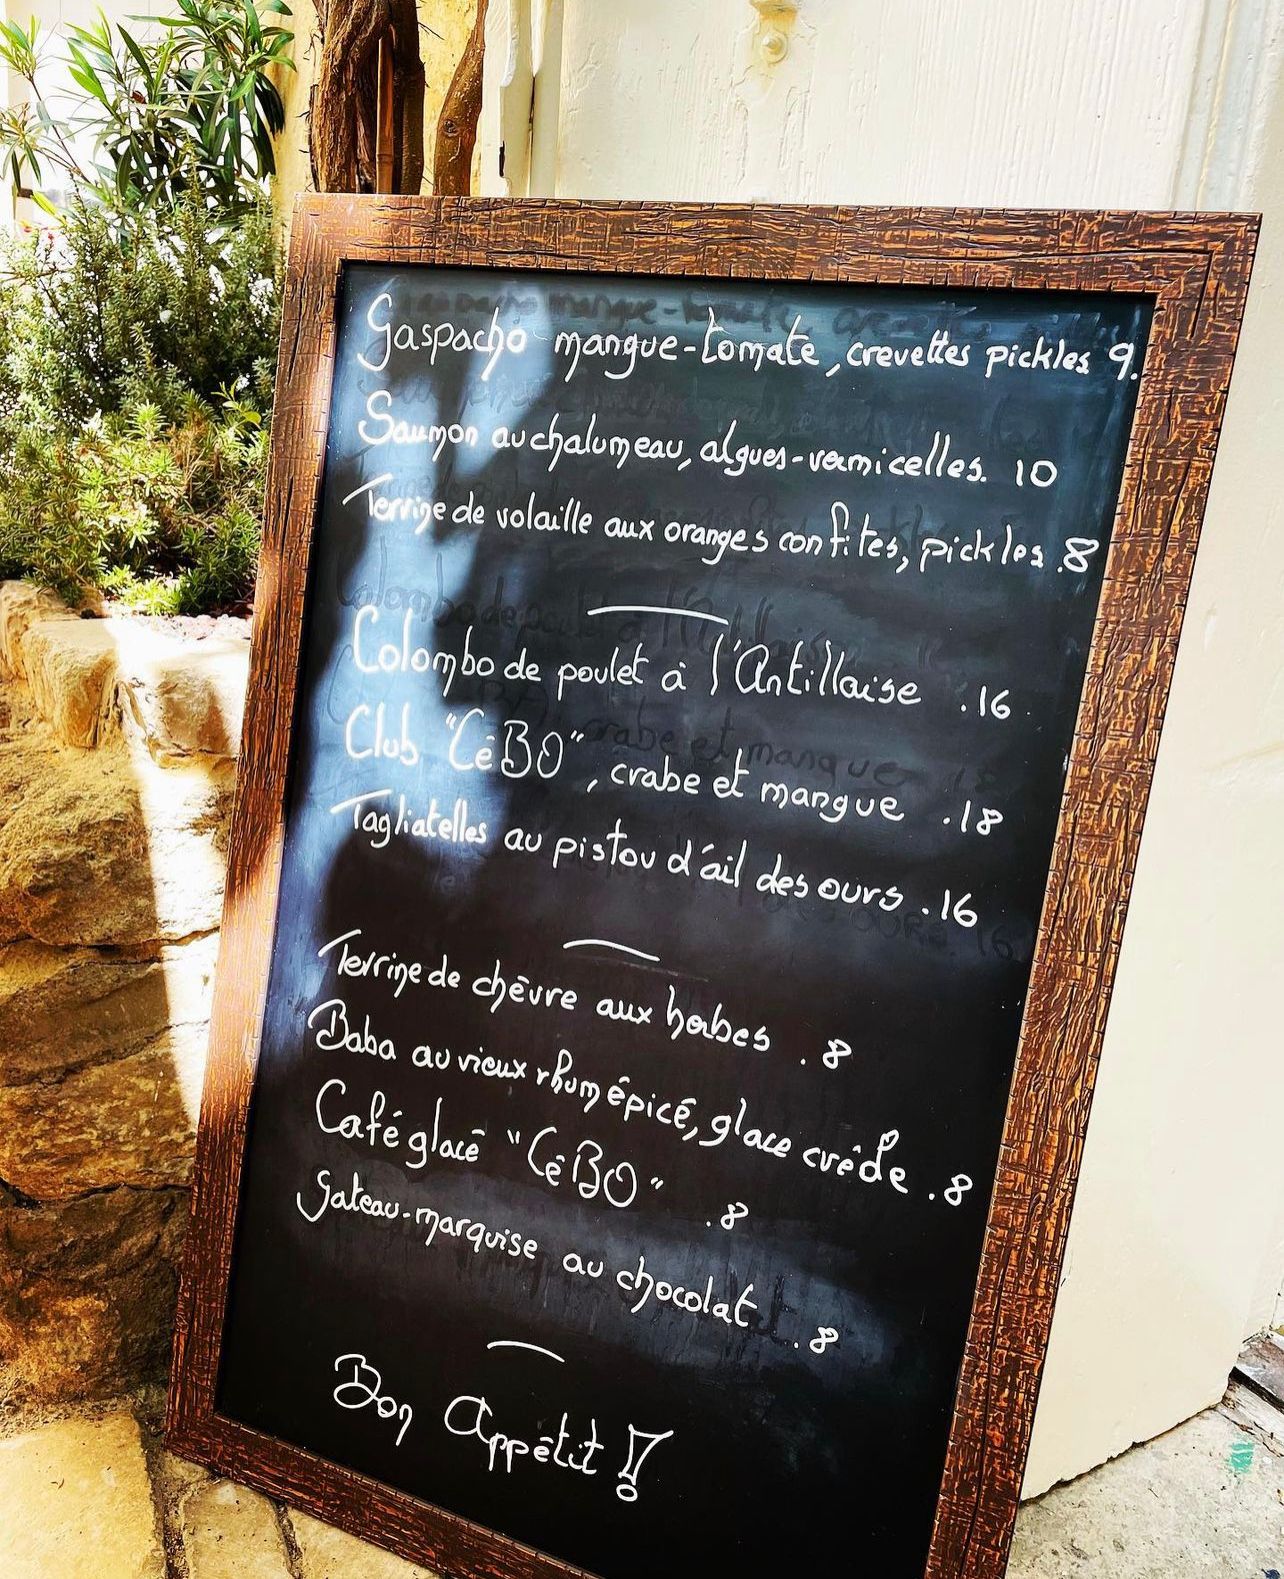 Gaspacho mangue-tomate, crevettes pickles 9.
Saumon au chalumeau, algues-vermicelles. 10
Terrine de volaille aux oranges confites, pickles .8
Colombo de poulet à l'Antillaise .16
Club "CéBO", crabe et mangue .18
Tagliatelles au pistou d'ail des ours .16
Terrine de chèvre aux herbes .8
Baba au vieux rhum épicé, glace créole .8
Café glacé "CéBO" .8
Gateau-marquise au chocolat .8
Bon Appétit !